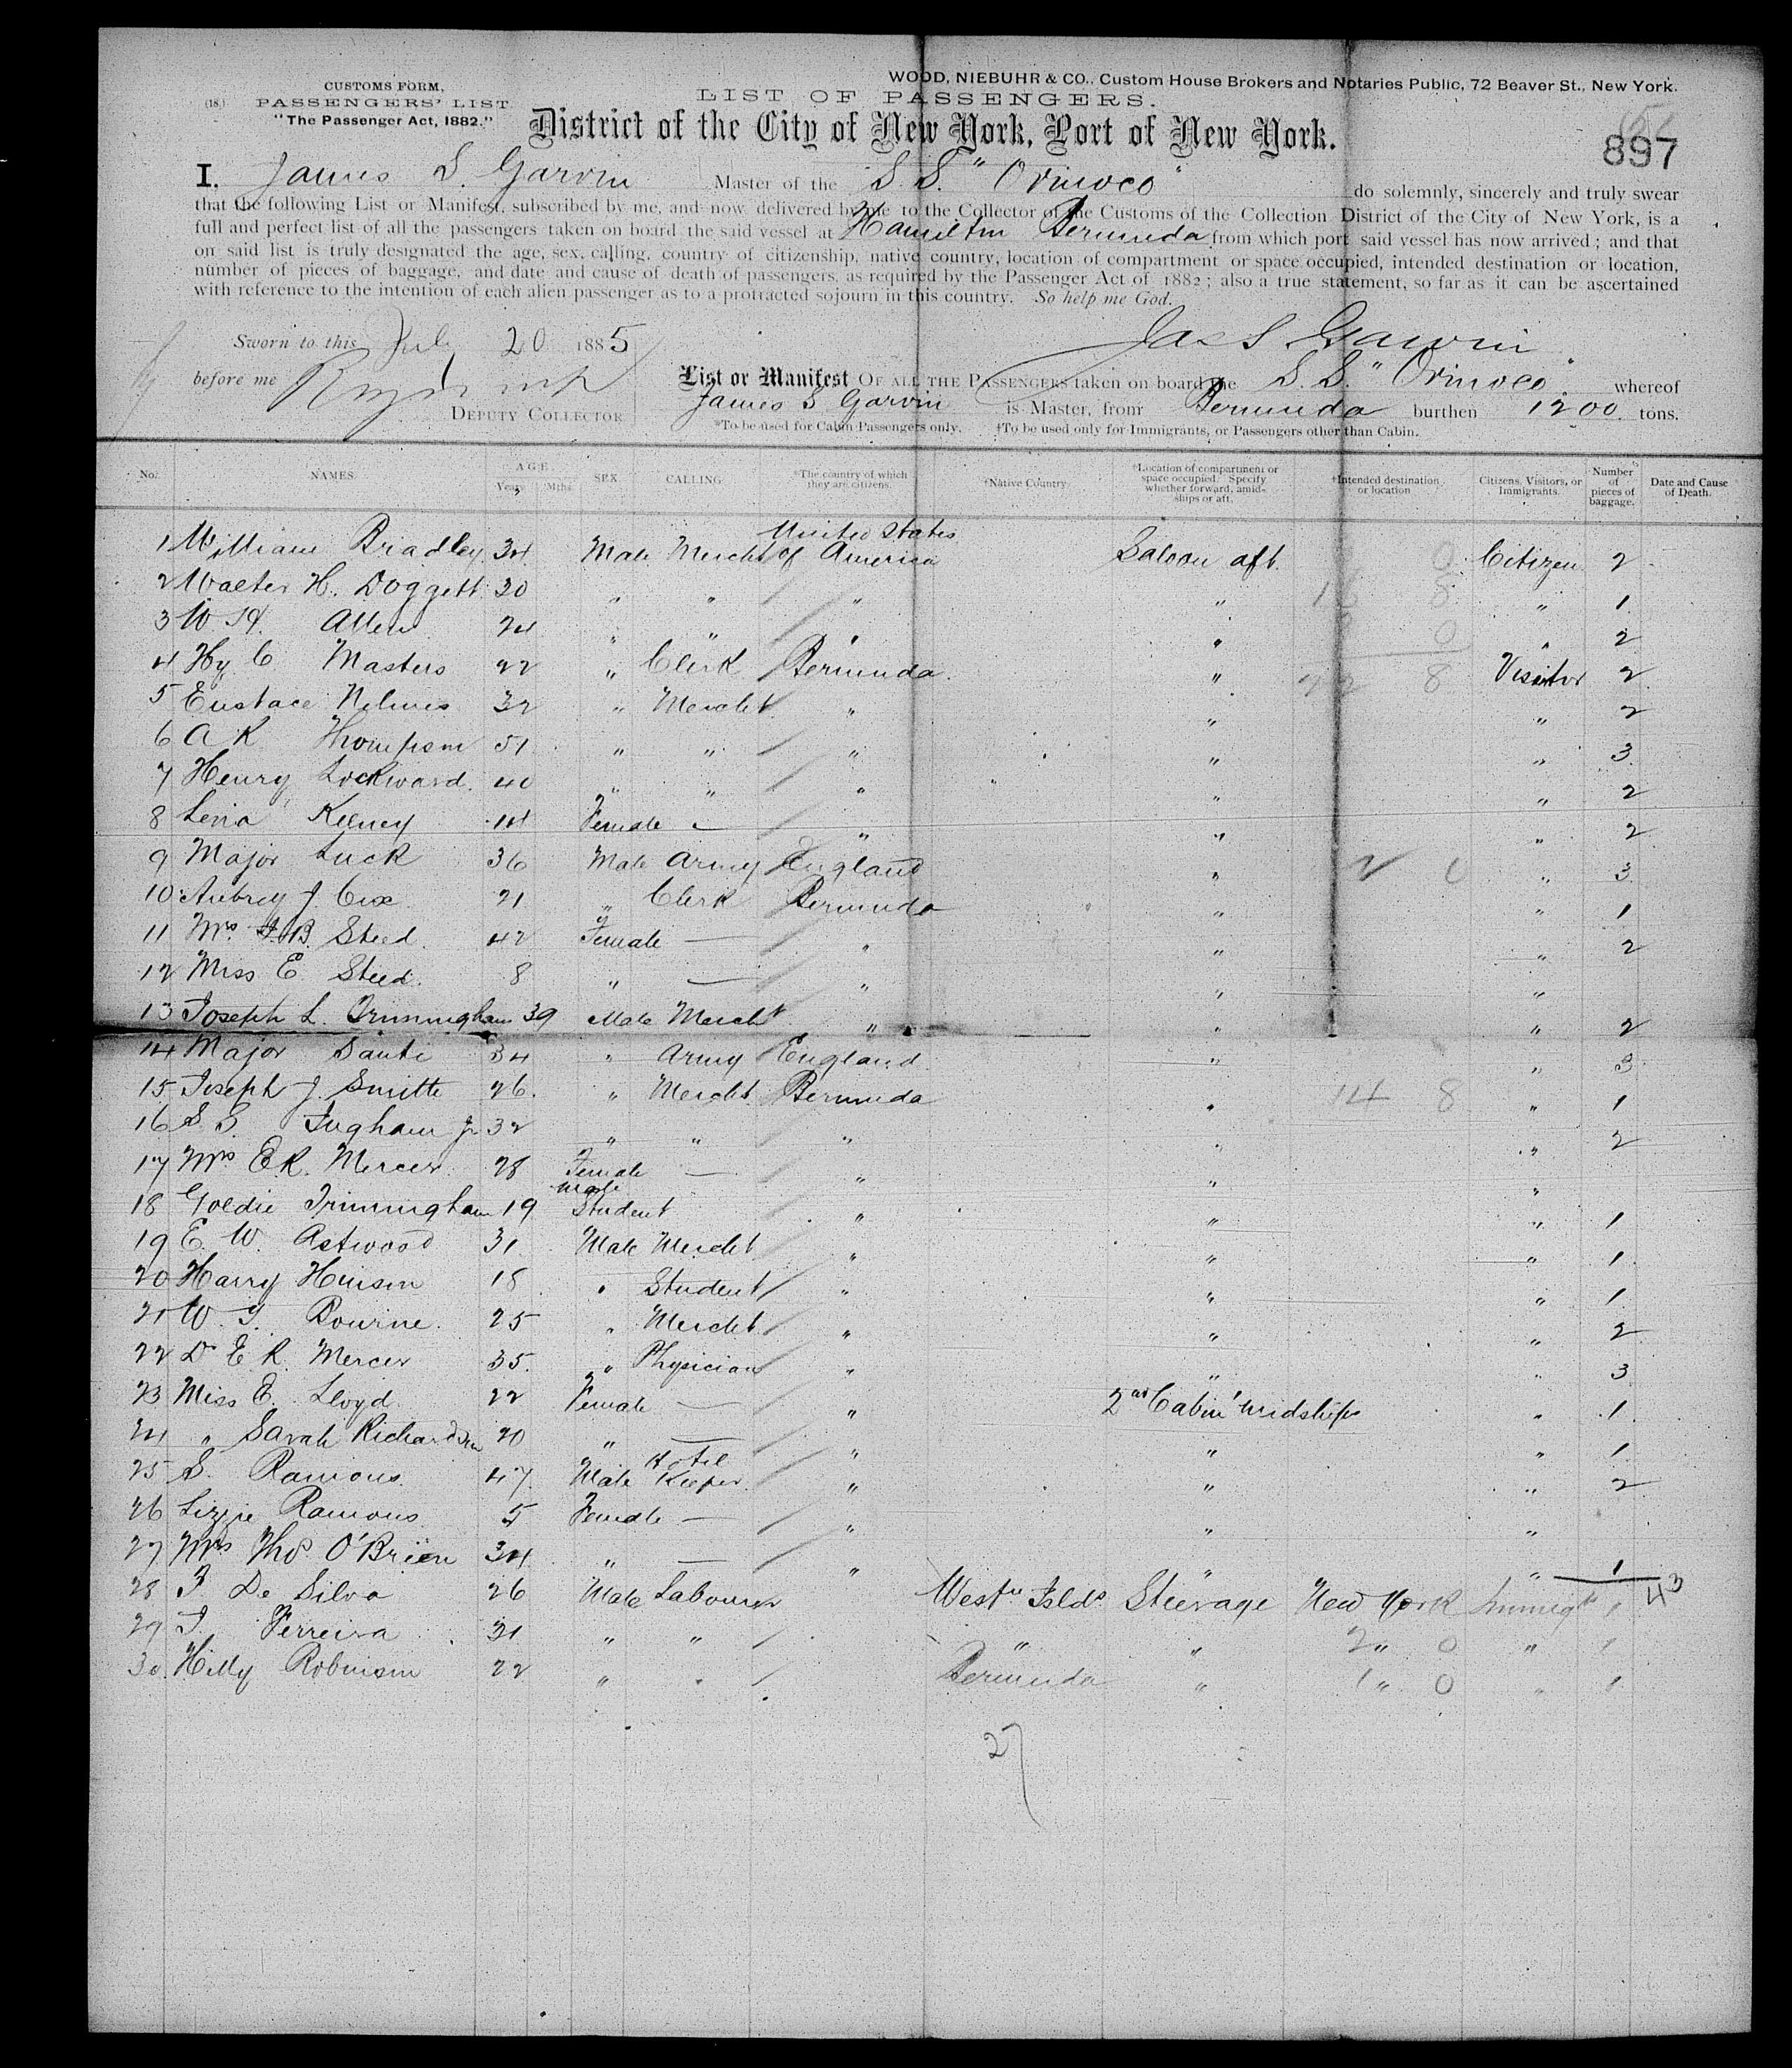 WOOD, NIEBUHR & CO., Custom House Brokers and Notaries Public, 72 Beaver St., New York.
CUSTOMS FORM,
(18.) PASSENGERS' LIST.
"The Passenger Act, 1882."
LIST OF PASSENGERS.
District of the City of New York, Port of New York.
897
I. James S. Garvin Master of the S.S. "Orinoco" do solemnly, sincerely and truly swear
that the following List or Manifest, subscribed by me, and now delivered by me to the Collector of the Customs of the Collection District of the City of New York, is a
full and perfect list of all the passengers taken on board the said vessel at Hamilton Bermuda from which port said vessel has now arrived; and that
on said list is truly designated the age, sex, calling, country of citizenship, native country, location of compartment or space occupied, intended destination or location,
number of pieces of baggage, and date and cause of death of passengers, as required by the Passenger Act of 1882; also a true statement, so far as it can be ascertained
with reference to the intention of each alien passenger as to a protracted sojourn in this country. So help me God.
Jas S Garvin
Sworn to this July 20 1885
before me
DEPUTY COLLECTOR
List or Manifest OF ALL THE PASSENGERS taken on board the S.S. "Orinoco" whereof
James S Garvin is Master, from Bermuda burthen 1200 tons.
*To be used for Cabin Passengers only. †To be used only for Immigrants, or Passengers other than Cabin.
No. NAMES AGE Years Mths. SEX CALLING *The country of which they are citizens. †Native Country †Location of compartment or space occupied. Specify whether forward, amidships or aft. †Intended destination or location Citizens, Visitors, or Immigrants. Number of pieces of baggage. Date and Cause of Death.
1 William Bradley 34 Male Mercht United States of America Saloon aft. Citizen 2
2 Walter H. Doggett 30 " " " " " 1
3 W H. Allen 24 " " " " " 2
4 Hy C Masters 22 " Clerk Bermuda " Visitor 2
5 Eustace Nelmes 32 " Mercht " " " 2
6 A K Thompson 51 " " " " " 3
7 Henry Lockward 40 " " " " " 2
8 Lena Kelney 14 Female — " " " 2
9 Major Luck 36 Male Army England " " 3
10 Aubrey J. Cox 21 " Clerk Bermuda " " 1
11 Mrs. J.B. Steed 42 Female — " " " 2
12 Miss E Steed 8 " — " " "
13 Joseph L. Trimingham 39 Male Mercht " " " 2
14 Major Santi 34 " Army England " " 3
15 Joseph J. Smith 26 " Mercht Bermuda " 14 8 " 1
16 S S. Ingham Jr 32 " " " " " 2
17 Mrs E.R. Mercer 28 Female — " " "
18 Goldie Trimingham 19 Male Student " " " 1
19 E. W. Astwood 31 Male Mercht " " " 1
20 Harry Hinson 18 " Student " " " 1
21 W. T. Bourne 25 " Mercht " " " 2
22 Dr E R. Mercer 35 " Physician " " " 3
23 Miss E. Lloyd 22 Female — " 2nd Cabin midships " 1
24 " Sarah Richardson 20 " — " " " 1
25 S. Ramous 47 Male Hotel Keeper " " " 2
26 Lizzie Ramous 5 Female — " " "
27 Mrs Thos O'Brien 34 " — " " " 1
43
28 J De Silva 26 Male Labourer Westn Islds Steerage New York Immigt 1
29 J. Ferreira 31 " " " " " " 1
30 Hilly Robinson 22 " " Bermuda " " " 1
27